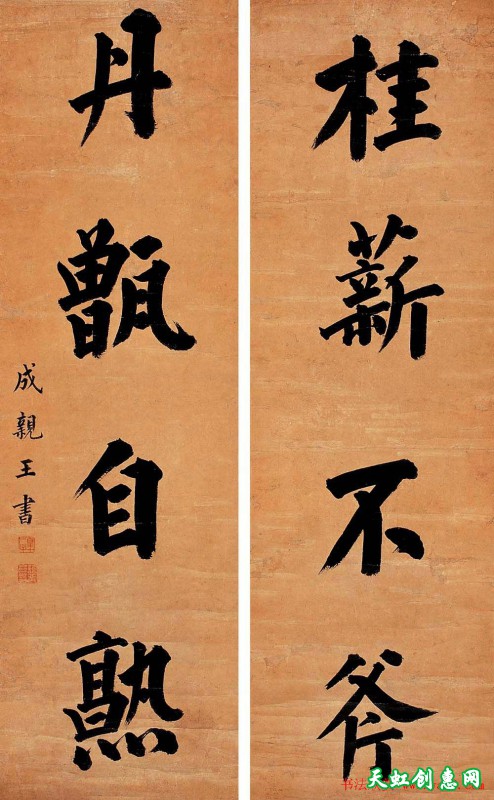 桂薪不斧
丹甑自熟
成親王書
天虹创惠网